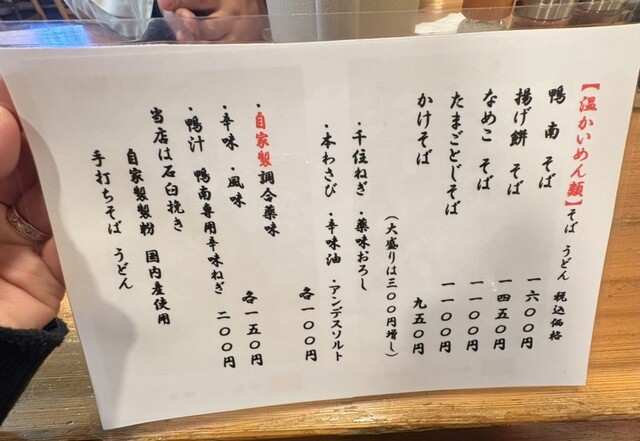 【温かいめん類】そば うどん 税込価格
鴨南そば 一六００円
揚げ餅 そば 一四五０円
なめこ そば 一一００円
たまごとじそば 一一００円
かけそば 九五０円
(大盛りは三００円増し)
・千住ねぎ ・薬味おろし
・本わさび ・辛味油 ・アンデスソルト
各一００円
・自家製調合薬味
・辛味 ・風味 各一五０円
・鴨汁 鴨南専用辛味ねぎ 二００円
当店は石臼挽き
自家製製粉 国内産使用
手打ちそば うどん